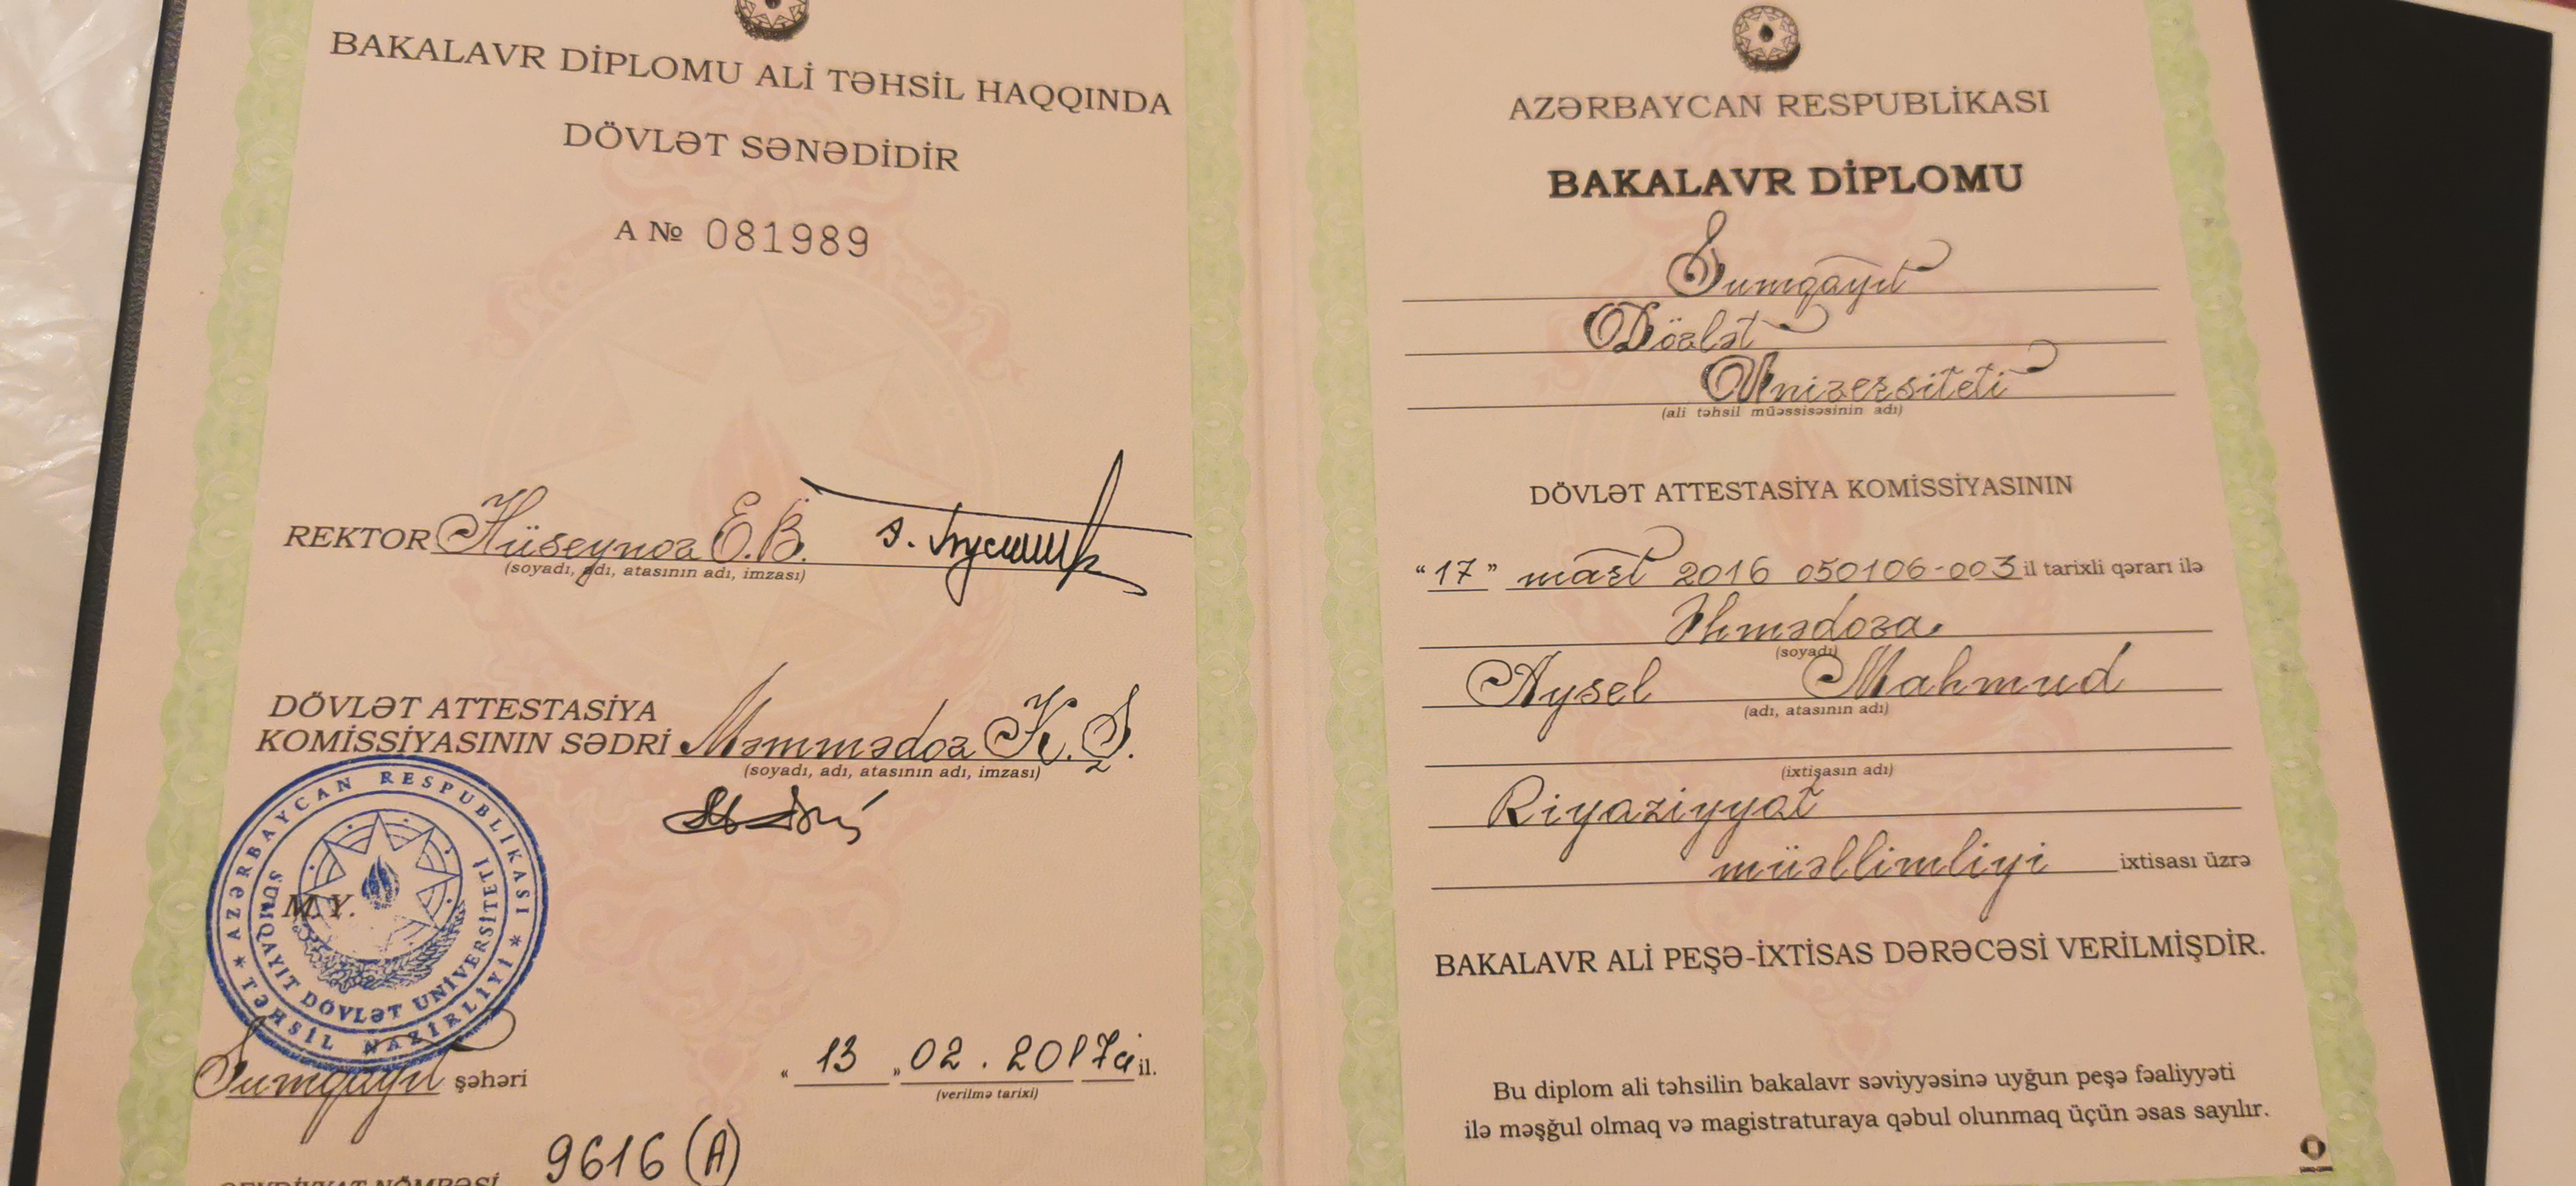 BAKALAVR DİPLOMU ALİ TƏHSİL HAQQINDA
DÖVLƏT SƏNƏDİDİR
A № 081989
REKTOR Hüseynov E.B.
(soyadı, adı, atasının adı, imzası)
DÖVLƏT ATTESTASİYA
KOMİSSİYASININ SƏDRİ Məmmədov K.Ş.
(soyadı, adı, atasının adı, imzası)
AZƏRBAYCAN RESPUBLİKASI * TƏHSİL NAZİRLİYİ *
SUMQAYIT DÖVLƏT UNİVERSİTETİ
M.Y.
Sumqayıt şəhəri
"13" 02. 2017ci il.
(verilmə tarixi)
QEYDİYYAT NÖMRƏSİ 9616 (A)
AZƏRBAYCAN RESPUBLİKASI
BAKALAVR DİPLOMU
Sumqayıt
Dövlət
Universiteti
(ali təhsil müəssisəsinin adı)
DÖVLƏT ATTESTASİYA KOMİSSİYASININ
"17" mart 2016 050106-003 il tarixli qərarı ilə
Əhmədova
(soyadı)
Aysel Mahmud
(adı, atasının adı)
(ixtisasın adı)
Riyaziyyat
müəllimliyi ixtisası üzrə
BAKALAVR ALİ PEŞƏ-İXTİSAS DƏRƏCƏSİ VERİLMİŞDİR.
Bu diplom ali təhsilin bakalavr səviyyəsinə uyğun peşə fəaliyyəti
ilə məşğul olmaq və magistraturaya qəbul olunmaq üçün əsas sayılır.